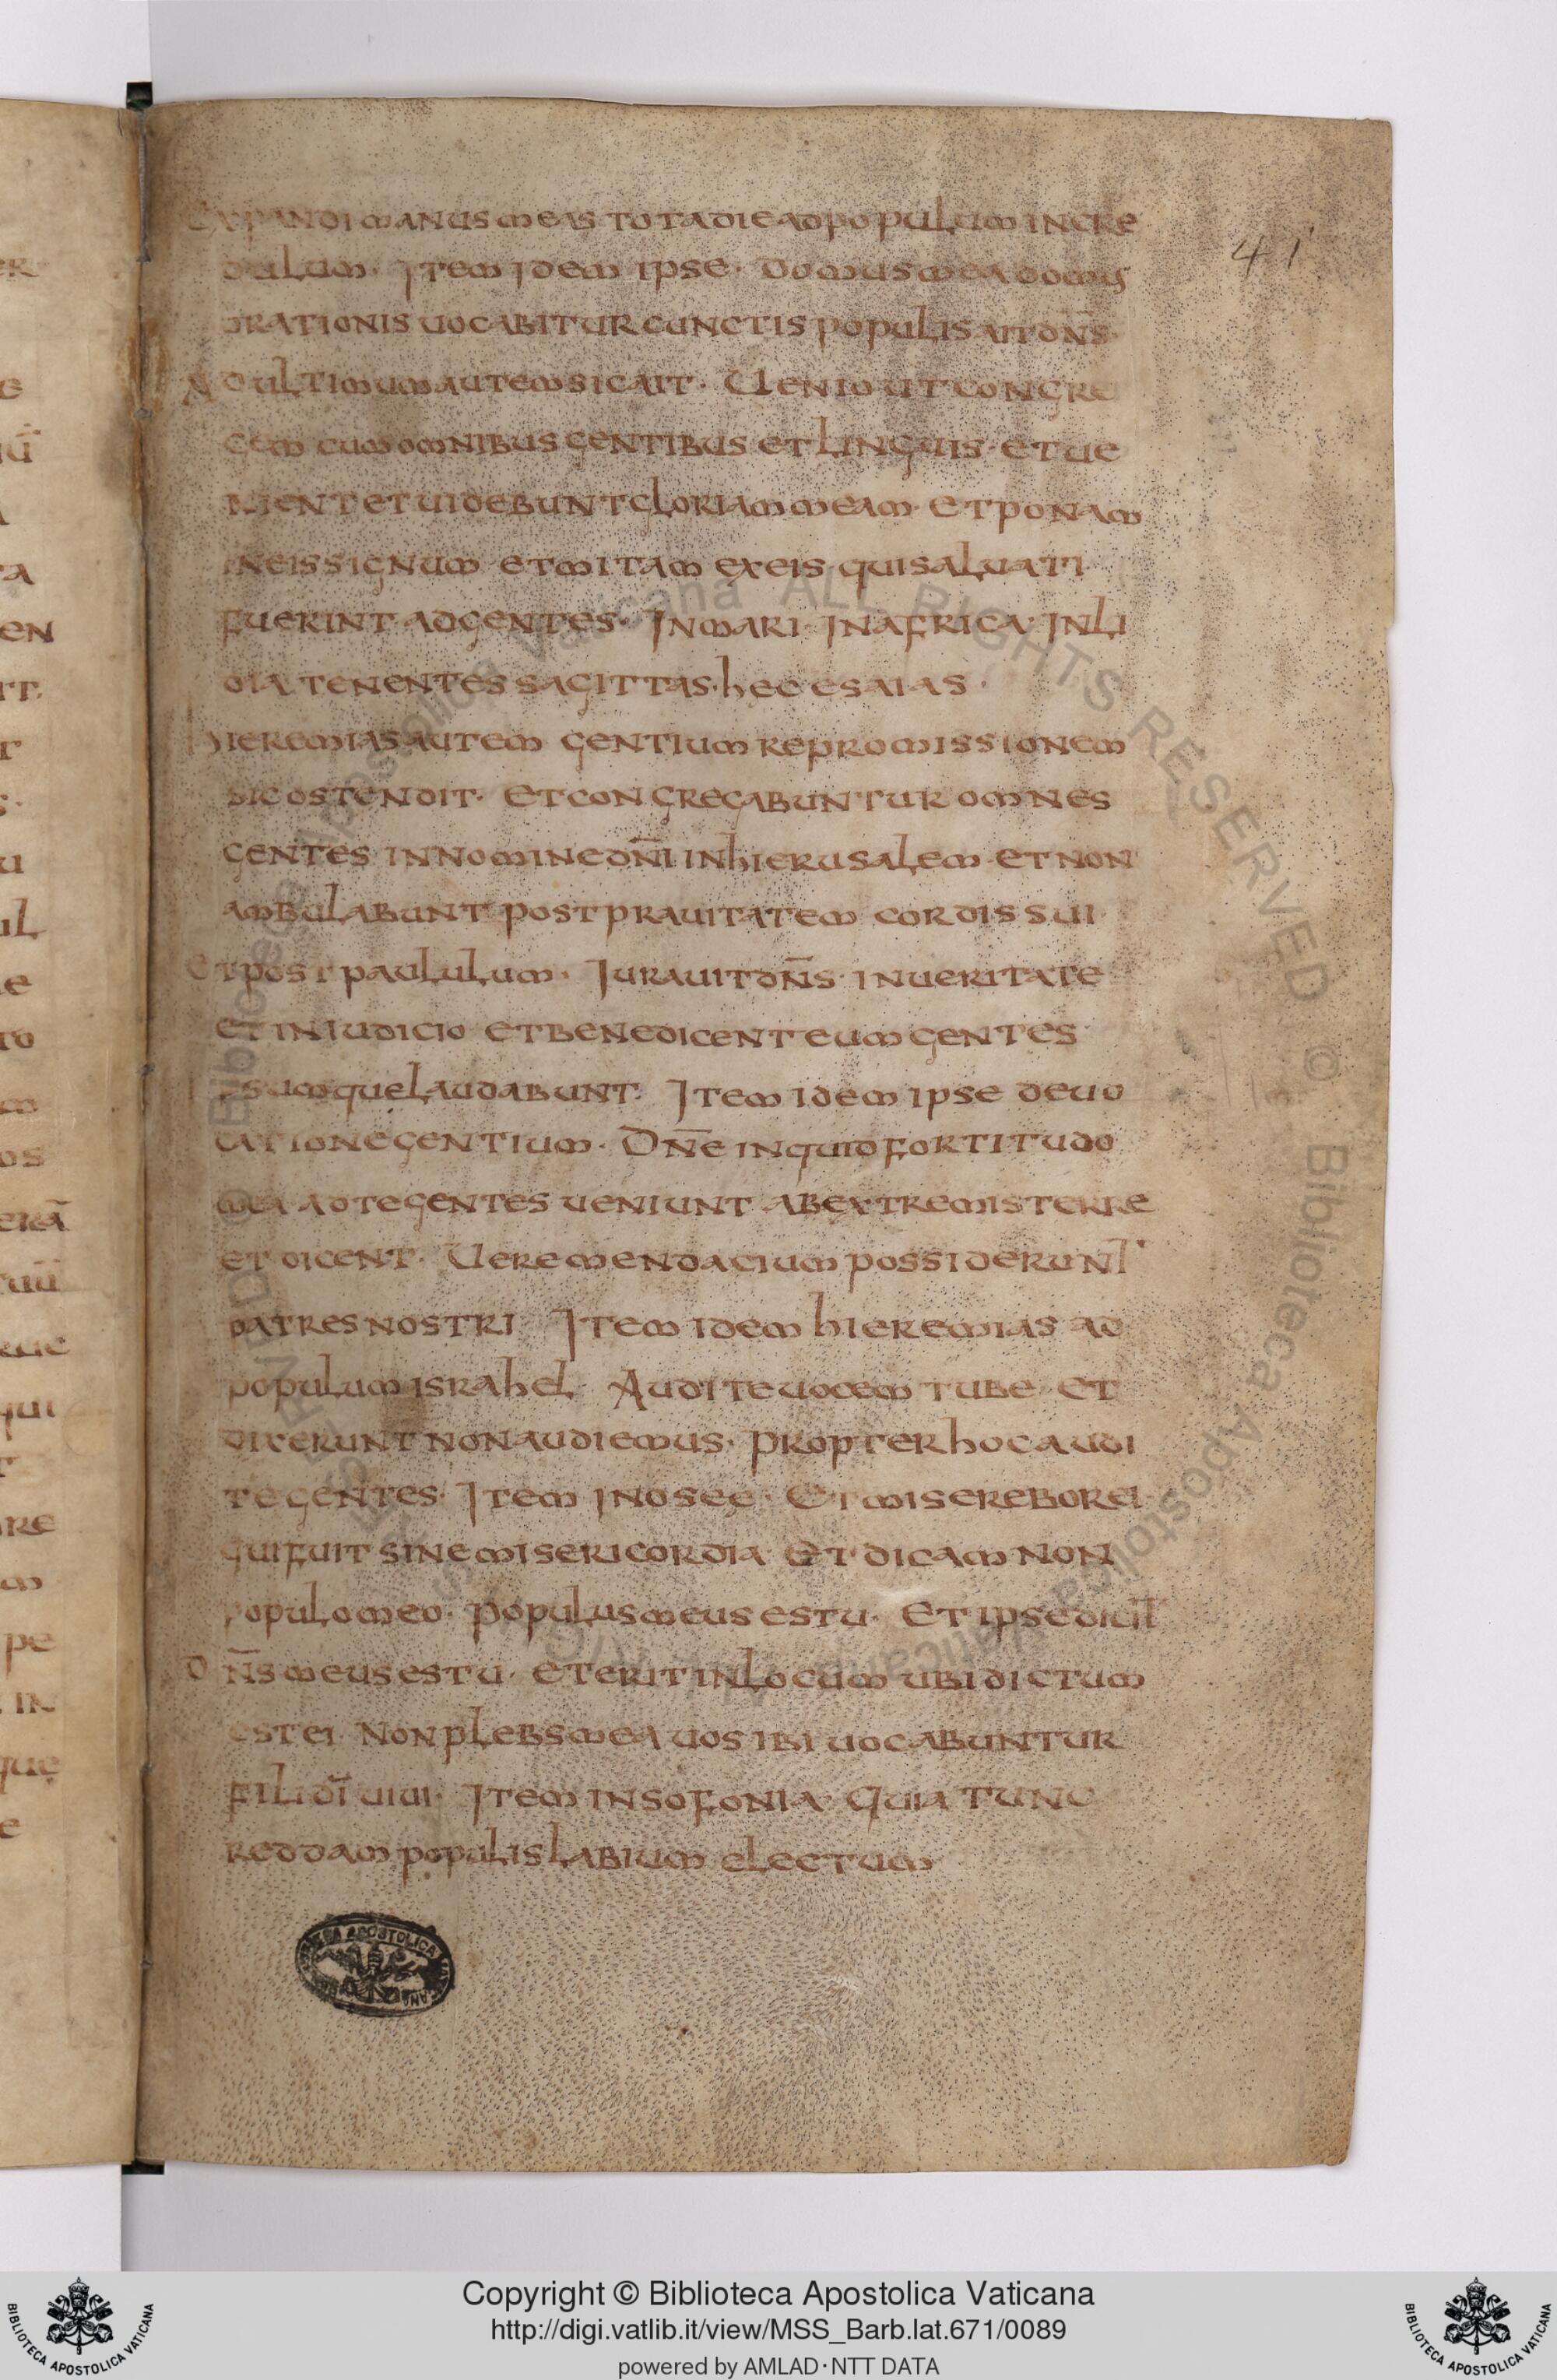 41
Expandi manus meas tota die ad populum incre
dulum· Item Idem ipse· Domus mea domus
orationis uocabitur cunctis populis ait dn̄s·
Ad ultimum autem sic ait· Uenio ut congre
gem cum omnibus gentibus et linguis· et ue
nient et uidebunt gloriam meam· et ponam
in eis signum et mitam ex eis qui saluati
fuerint ad gentes· In mari· In africa· In li
dia tenentes sagittas· hec esaias·
hieremias autem gentium repromissionem
sic ostendit· et congregabuntur omnes
gentes in nomine dn̄i in hierusalem et non
ambulabunt post prauitatem cordis sui·
et post paululum· Iurauit dn̄s in ueritate
et in iudicio et benedicent eum gentes
Ipsumque laudabunt· Item idem ipse de uo
catione gentium· Dn̄e inquid fortitudo
mea ad te gentes ueniunt ab extremis terre
et dicent· Uere mendacium possiderunt
patres nostri· Item idem hieremias ad
populum israhel· Audite uocem tube et
dixerunt non audiemus· propter hoc audi
te gentes· Item In osee· Et miserebor ei
qui fuit sine misericordia Et dicam non
populo meo· populus meus es tu· Et ipse dicit
Dn̄s meus es tu· et erit in locum ubi dictum
est ei· Non plebs mea uos ibi uocabuntur
fili dī uiui· Item in sofonia Quia tunc
reddam populis labium electum
Biblioteca Apostolica Vaticana ALL RIGHTS RESERVED ©
BIBLIOTECA APOSTOLICA VATICANA
Copyright © Biblioteca Apostolica Vaticana
http://digi.vatlib.it/view/MSS_Barb.lat.671/0089
powered by AMLAD·NTT DATA
BIBLIOTECA APOSTOLICA VATICANA